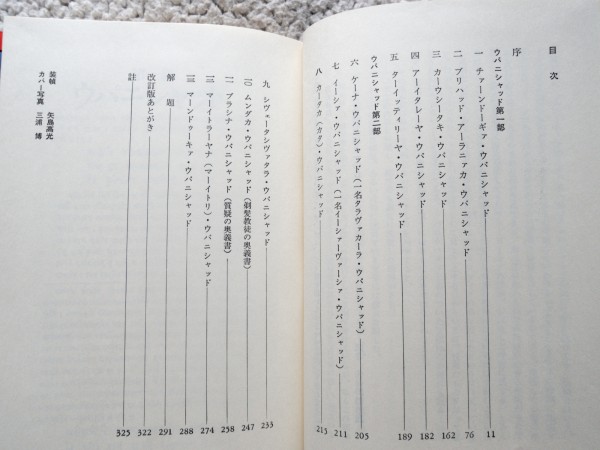 目次
序
ウパニシャッド第一部
一 チァーンドーギァ・ウパニシャッド 11
二 ブリハッド・アーラニァカ・ウパニシャッド 76
三 カーウシータキ・ウパニシャッド 162
四 アーイタレーヤ・ウパニシャッド 182
五 ターイッティリーヤ・ウパニシャッド 189
ウパニシャッド第二部
六 ケーナ・ウパニシャッド(一名タラヴァカーラ・ウパニシャッド) 205
七 イーシァ・ウパニシャッド(一名イーシァーヴァーシァ・ウパニシャッド) 211
八 カータカ(カタ)・ウパニシャッド 213
九 シヴェータシヴァタラ・ウパニシャッド 233
一〇 ムンダカ・ウパニシャッド(剃髪教徒の奥義書) 247
一一 プラシナ・ウパニシャッド(質疑の奥義書) 258
一二 マーイトラーヤナ(マーイトリ)・ウパニシャッド 274
一三 マーンドゥーキァ・ウパニシャッド 288
解題 291
改訂版あとがき 322
註 325
装幀 矢島高光
カバー写真 三浦博